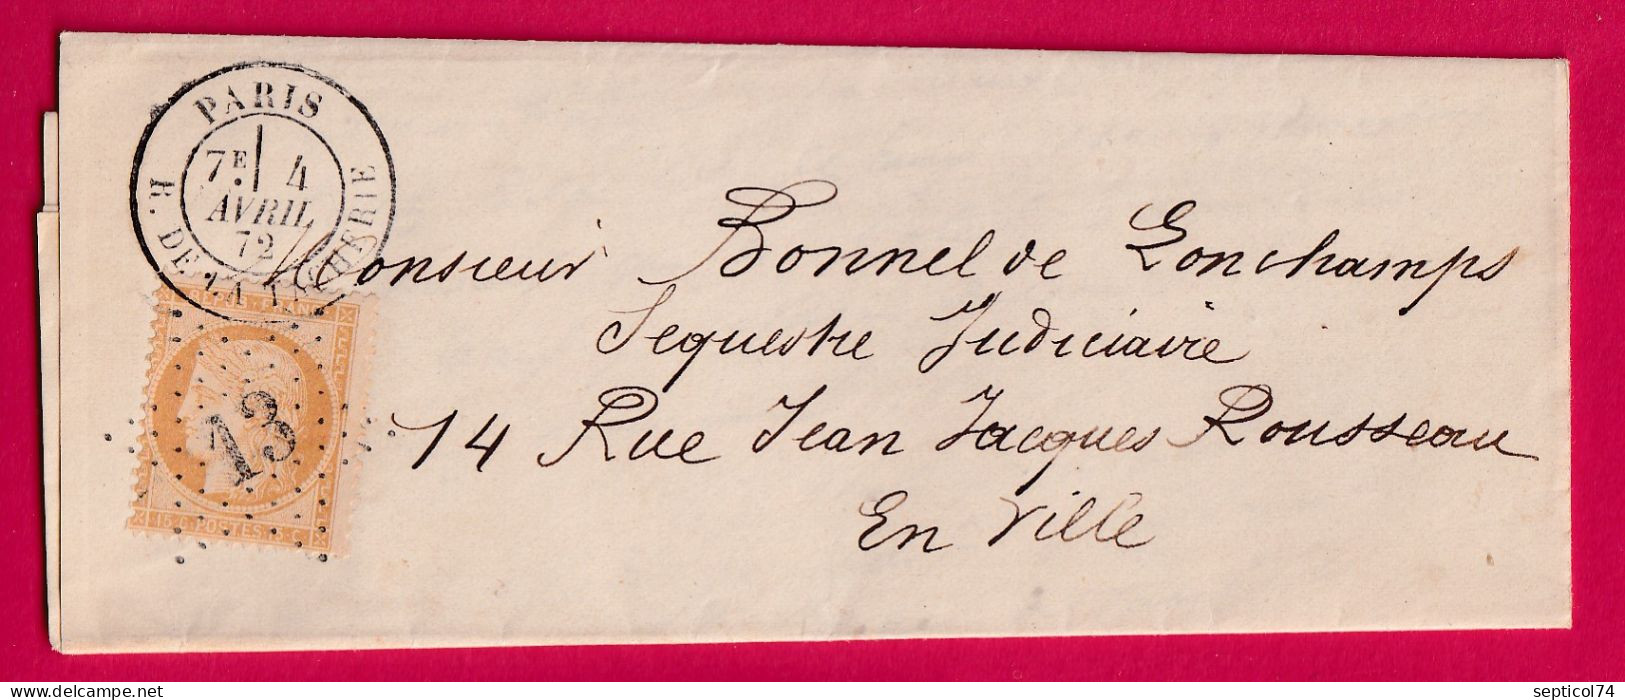 PARIS
7E 4
AVRIL
72
R. DE LA
REPUB. FRANC
13
15 C. POSTES 15 C.
Monsieur Bonnel de Lonchamps
Sequestre Judiciaire
14 Rue Jean Jacques Rousseau
En Ville
septicol74